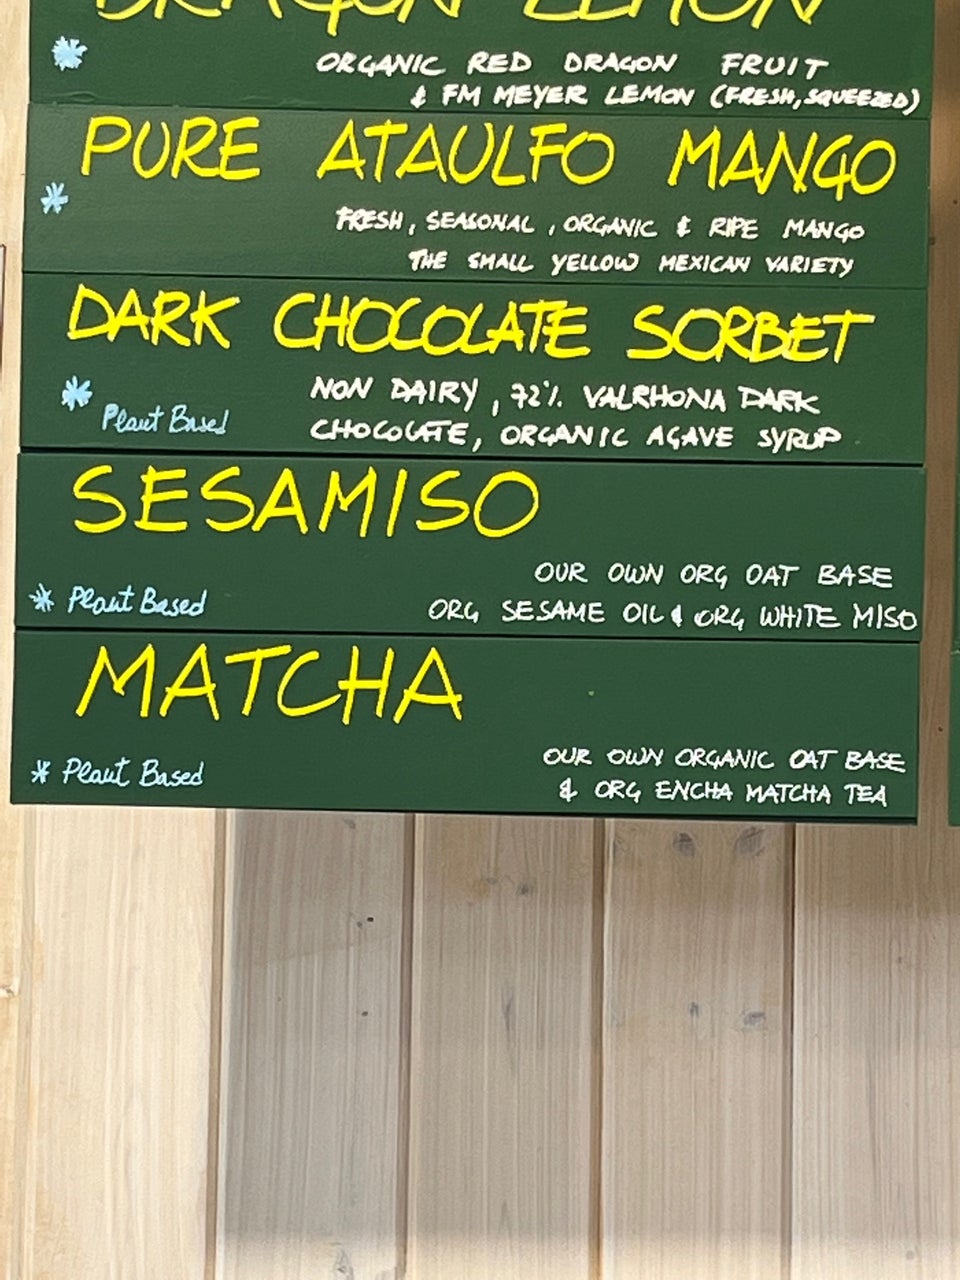 DRAGON LEMON
* ORGANIC RED DRAGON FRUIT
& FM MEYER LEMON (FRESH, SQUEEZED)
PURE ATAULFO MANGO
* FRESH, SEASONAL, ORGANIC & RIPE MANGO
THE SMALL YELLOW MEXICAN VARIETY
DARK CHOCOLATE SORBET
* NON DAIRY, 72% VALRHONA DARK
Plant Based CHOCOLATE, ORGANIC AGAVE SYRUP
SESAMISO
OUR OWN ORG OAT BASE
* Plant Based ORG SESAME OIL & ORG WHITE MISO
MATCHA
OUR OWN ORGANIC OAT BASE
* Plant Based & ORG ENCHA MATCHA TEA